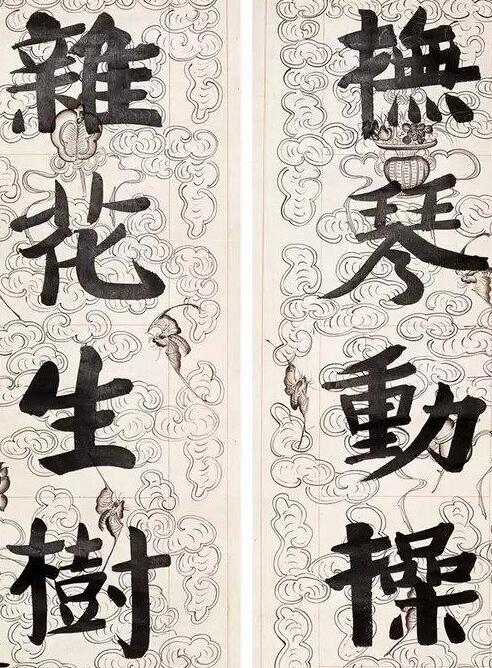 撫琴動操
雜花生樹